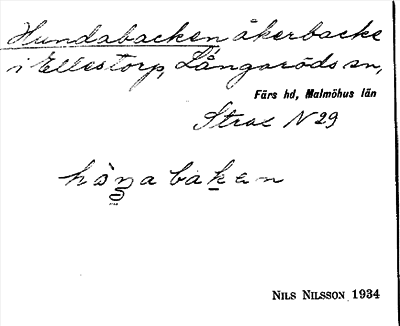 Hundabacken åkerbacke
i Ellestorp, Långaröds sn,
Färs hd, Malmöhus län
Stras N 29
hon̰a baken
NILS NILSSON 1934